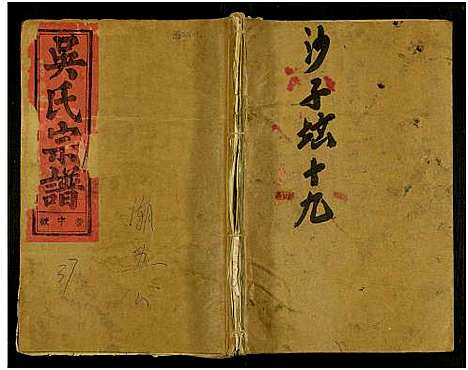 吳氏宗譜
字號
37
沙子塝十九